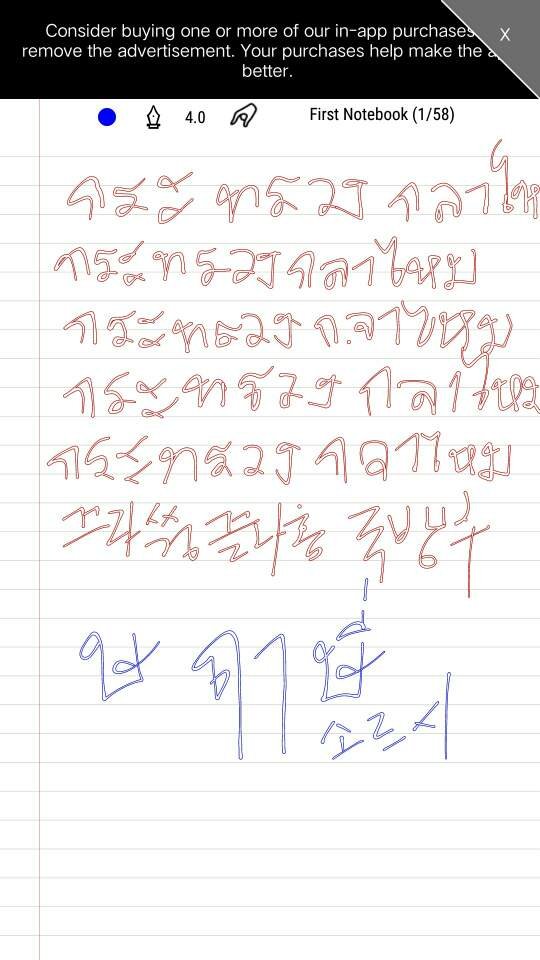 Consider buying one or more of our in-app purchases
remove the advertisement. Your purchases help make the
better.
X
4.0 First Notebook (1/58)
กระ ทรวง กลาโห
กระทรวงกลาโหม
กระทรวง กลาโหม
กระทรวง กลาโหม
กระทรวง กลาโหม
ษ ฤาษี